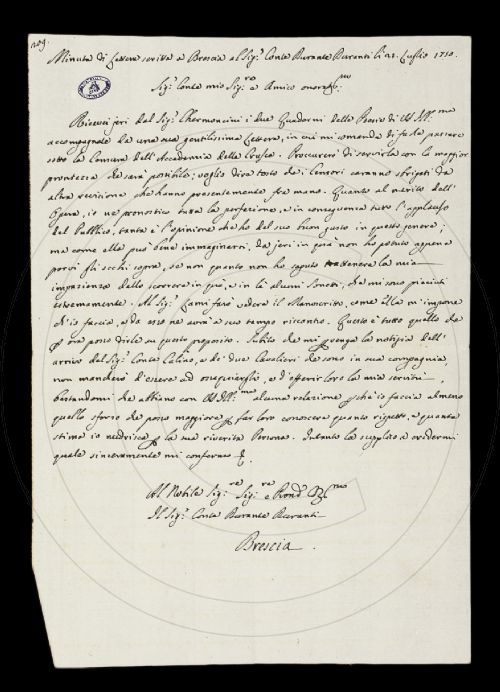 209.
Minuta di Lettera scritta a Brescia al Sig.r Conte Durante Duranti li 23. Luglio 1750.
Sig.r Conte mio Sig.re e Amico onora.mo
Ricevei jeri dal Sig.r Chermoncini i due Quaderni delle Poesie di VS. Ill.ma
accompagnate da una sua gentilissima Lettera, in cui mi comanda di farle passare
sotto la Censura dell'Accademia della Crusca. Procurerò di servirla con la maggior
prontezza che sarà possibile; voglio dire tosto che i Censori saranno sbrigati da
altra revisione che hanno presentemente fra mano. Quanto al merito dell'
Opera, io ne pronostico tutta la perfezione, e in conseguenza tutto l'applauso
del Pubblico, tanta è l'opinione che ho del suo buon gusto in questo genere;
ma come Ella può bene immaginarsi, da jeri in quà non ho potuto appena
porvi gli occhi sopra, se non quanto non ho saputo trattenere la mia
impazienza dello scorrere in quà, e in là alcuni Sonetti, che mi sono piaciuti
estremamente. Al Sig.r Lami farò vedere il Manoscritto, come Ella m'impone
ch'io faccia, e da esso ne avrà a suo tempo riscontro. Questo è tutto quello che
p ora posso dirle su questo proposito. Subito che mi p venga la notizia dell'
arrivo del Sig.r Conte Calino, e de' due Cavalieri che sono in sua compagnia
non mancherò d'essere ad ossequiargli, e d'offerir loro la mia servitù,
bastandomi che abbiano con VS. Ill.ma alcuna relazione pchè io faccia almeno
quello sforzo che posso maggiore p far loro conoscere quanto rispetto, e quanta
stima io nudrisca p la sua riverita Persona. Intanto la supplico a credermi
quale sinceramente mi confermo
Al Nobile Sig.re Sig.re e Pron
Il Sig.r Conte Durante Duranti
Brescia.